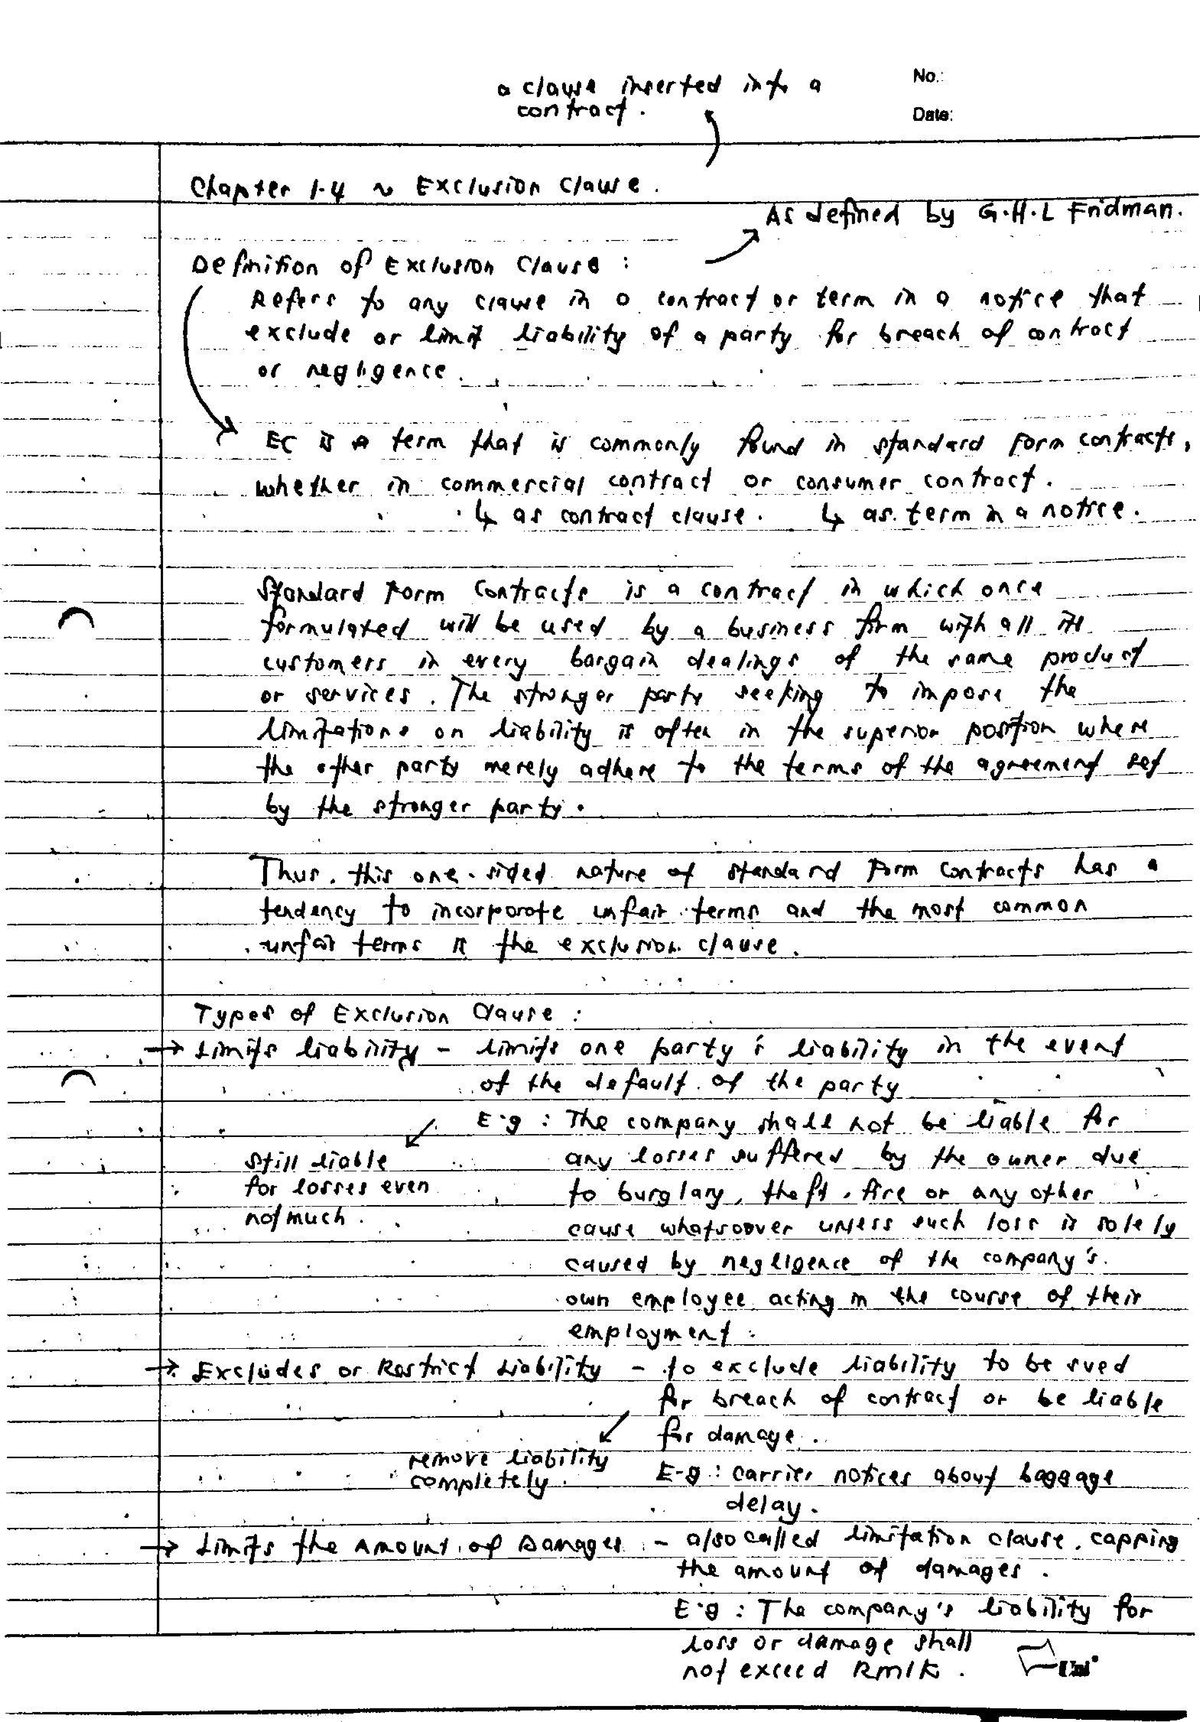 a clause inserted into a
contract.
No.:
Date:
Chapter 1.4 ~ Exclusion Clause.
As defined by G.H.L Fridman.
Definition of Exclusion Clause :
Refers to any clause in a contract or term in a notice that
exclude or limit liability of a party for breach of contract
or negligence.
EC is a term that is commonly found in standard form contracts,
whether in commercial contract or consumer contract.
↳ as contract clause. ↳ as term in a notice.
Standard Form Contracts is a contract in which once
formulated will be used by a business firm with all its
customers in every bargain dealings of the same product
or services. The stronger party seeking to impose the
limitations on liability is often in the superior position where
the other party merely adhere to the terms of the agreement set
by the stronger party.
Thus, this one-sided nature of standard Form Contracts has a
tendency to incorporate unfair terms and the most common
unfair terms is the exclusion clause.
Types of Exclusion Clause :
→ Limits liability - limits one party's liability in the event
of the default of the party
E.g : The company shall not be liable for
any losses suffered by the owner due
to burglary, theft, fire or any other
cause whatsoover unless such loss is solely
caused by negligence of the company's
own employee acting in the course of their
employment.
still liable
for losses even
not much.
→ Excludes or Restrict Liability - to exclude liability to be sued
for breach of contract or be liable
for damage.
remove liability
completely.
E-g : carrier notices about baggage
delay.
→ Limits the Amount of Damages - also called limitation clause, capping
the amount of damages.
E.g : The company's liability for
loss or damage shall
not exceed Rm1k.
Uni